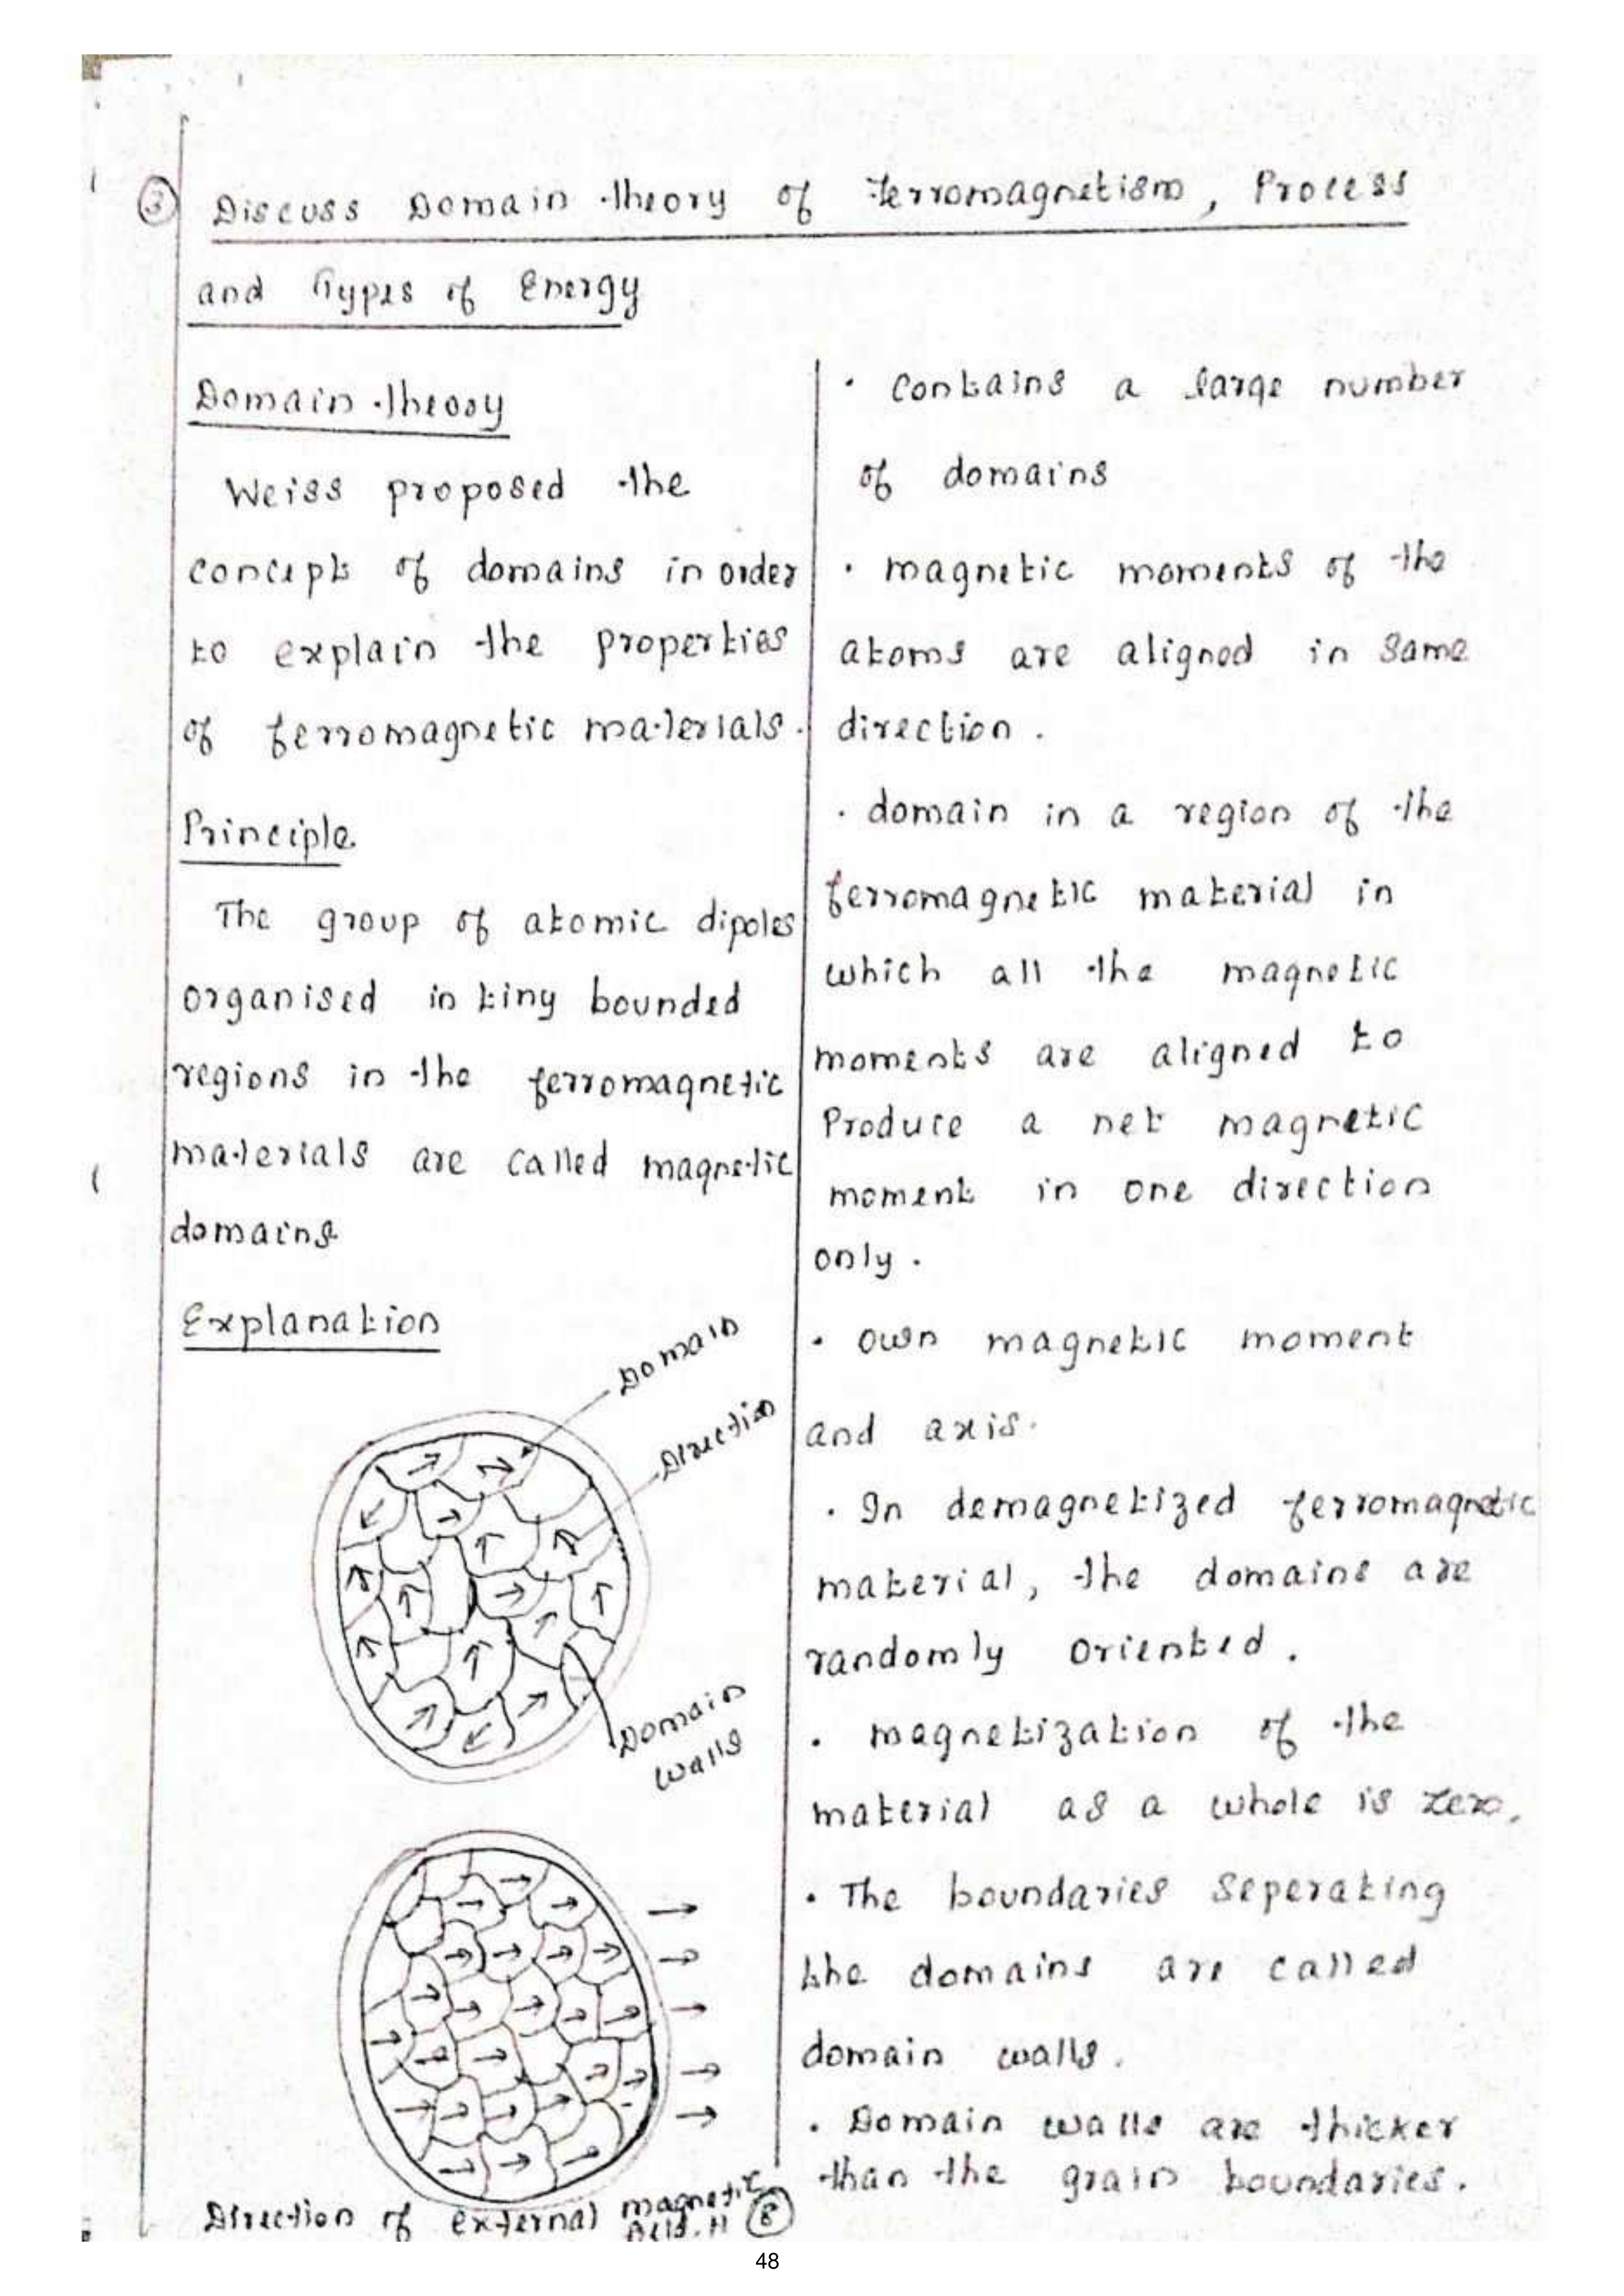 3 Discuss Domain theory of ferromagnetism, Process
and Types of Energy
Domain theory
Weiss proposed the
concept of domains in order
to explain the properties
of ferromagnetic materials.
Principle
The group of atomic dipoles
organised in tiny bounded
regions in the ferromagnetic
materials are called magnetic
domains
Explanation
Domain
Direction
Domain
walls
Direction of external magnetic
field. H 8
· contains a large number
of domains
· magnetic moments of the
atoms are aligned in same
direction.
· domain in a region of the
ferromagnetic material in
which all the magnetic
moments are aligned to
Produce a net magnetic
moment in one direction
only.
· own magnetic moment
and axis.
· In demagnetized ferromagnetic
material, the domains are
randomly oriented.
· magnetization of the
material as a whole is zero.
· The boundaries Seperating
the domains are called
domain walls.
· Domain walls are thicker
than the grain boundaries.
48